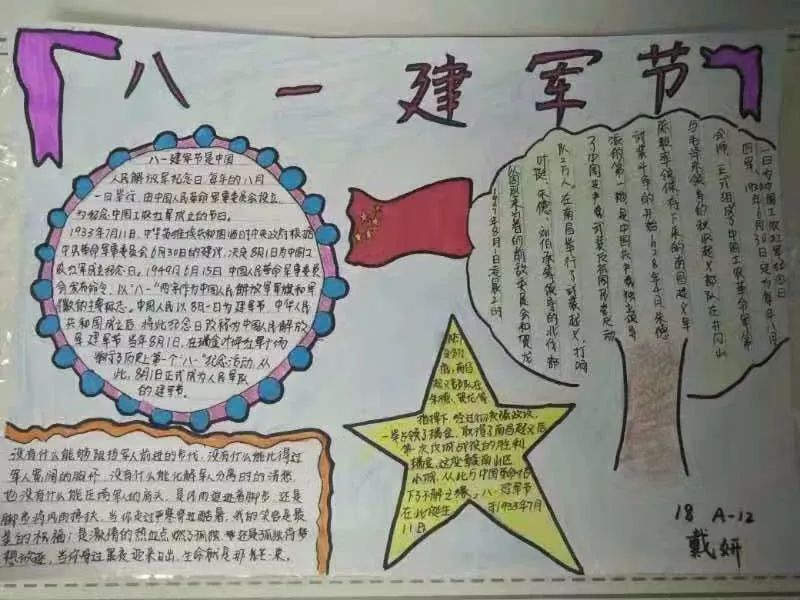 八一建军节
八一建军节是中国
人民解放军纪念日,每年的八月
一日举行,由中国人民革命军事委员会设立,
为纪念中国工农红军成立的节日。
1933年7月11日,中华苏维埃共和国临时中央政府根据
中央革命军事委员会6月30日的建议,决定8月1日为中国工
农红军成立纪念日。1949年6月15日,中国人民革命军事委员
会发布命令,以"八一"两字作为中国人民解放军军旗和军
徽的主要标志。中国人民以8月一日为建军节 中华人民
共和国成立后,将此纪念日改称为中国人民解放
军建军节 当年8月1日,在瑞金叶坪红军广场
举行了历史上第一个"八一"纪念活动,从
此,8月1日正式成为人民军队
的建军节。
一日为中国工农红军纪念日
四军。1933年6月30日定为每年八月
会师,正式组成了中国工农革命军第
与毛泽东领导的秋收起义部队在井冈山
陈毅率领保存下来的南昌起义军
对紧斗争的开始1928年4月,朱德
派的第一枪是中国共产党独立领导
了中国共产党武装反抗国民党反动
队2万人,在南昌举行了武装起义,打响
叶挺、朱德、刘伯承等领导的北伐部
以周恩来为首的前敌委员会和贺龙
1927年8月1日凌晨2时
南昌
起义部队在
朱德、贺龙等
指挥下,经过
一举占领了瑞金,取得了南昌起义后
第一次攻城战役的胜利
瑞金,这座赣南山区
小城,从此与中国革命结
下了不解之缘,八一建军节
在此诞生 于1933年7月
11日
没有什么能够阻挡军人前进的步伐,没有什么能比得过
军人宽阔的胸怀,没有什么能化解军人分离时的清愁
也没有什么能压垮军人的肩头,是风雨追逐着脚步,还是
脚步将风雨搀扶,当你走过严寒穿过酷暑,我的笑容是最
美的祝福;是激情的热血点燃了孤独,还是孤独将梦
想放逐,当你穿过黑夜迎来日出,生命就是那
18 A-12
戴妍